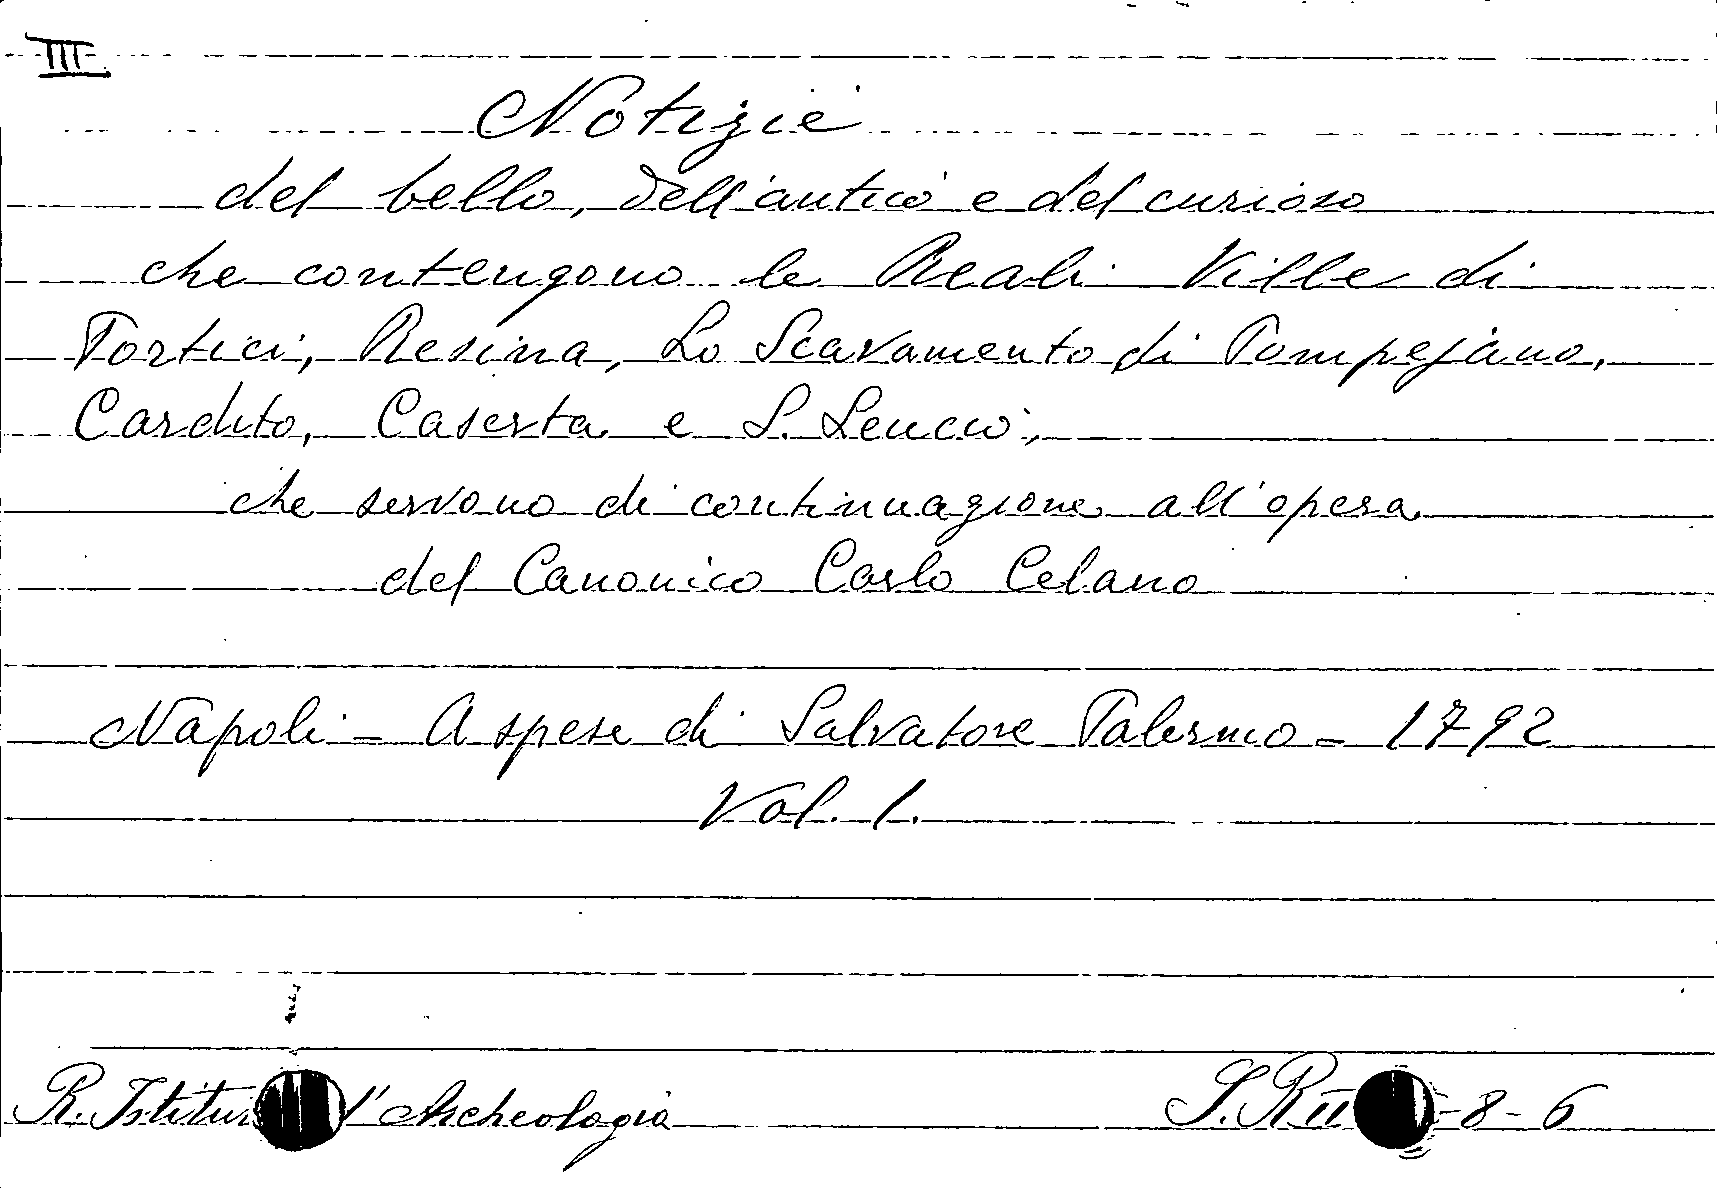 III
Notizie
del bello, dell'antico e del curioso
che contengono le Reali Ville di
Portici, Resina, Lo Scavamento di Pompejano,
Cardito, Caserta e S. Leucio,
che servono di continuazione all'opera
del Canonico Carlo Celano
Napoli - A spese di Salvatore Palermo - 1792
Vol. 1.
R. d'Archeologia
S. -8-6